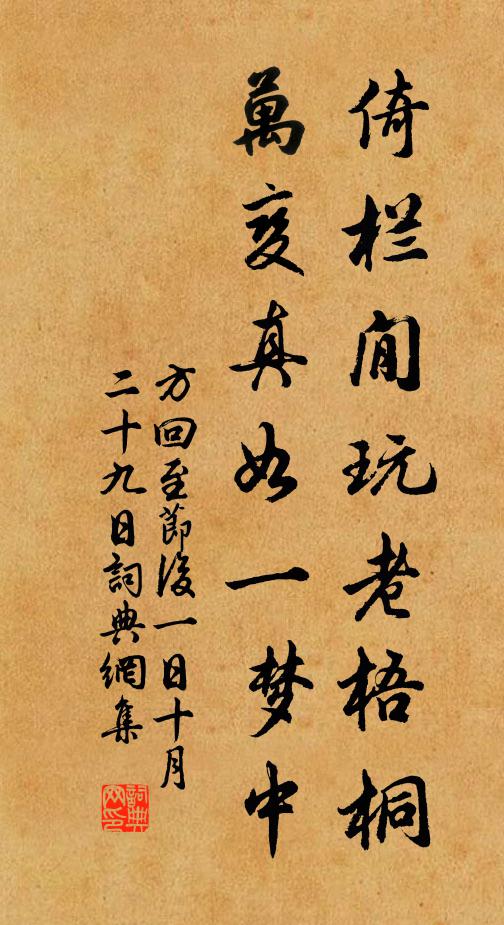 倚栏闲玩老梧桐
萬变真如一梦中
方回至節後一日十月
二十九日詞典網集
詞典
网印